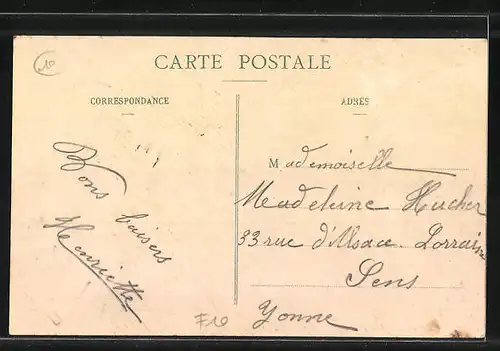 10
CARTE POSTALE
CORRESPONDANCE
ADRÉS
Bons baisers
Henriette
Mademoiselle
Madeleine Hucher
33 rue d'Alsace-Lorraine
Sens
Yonne
F10